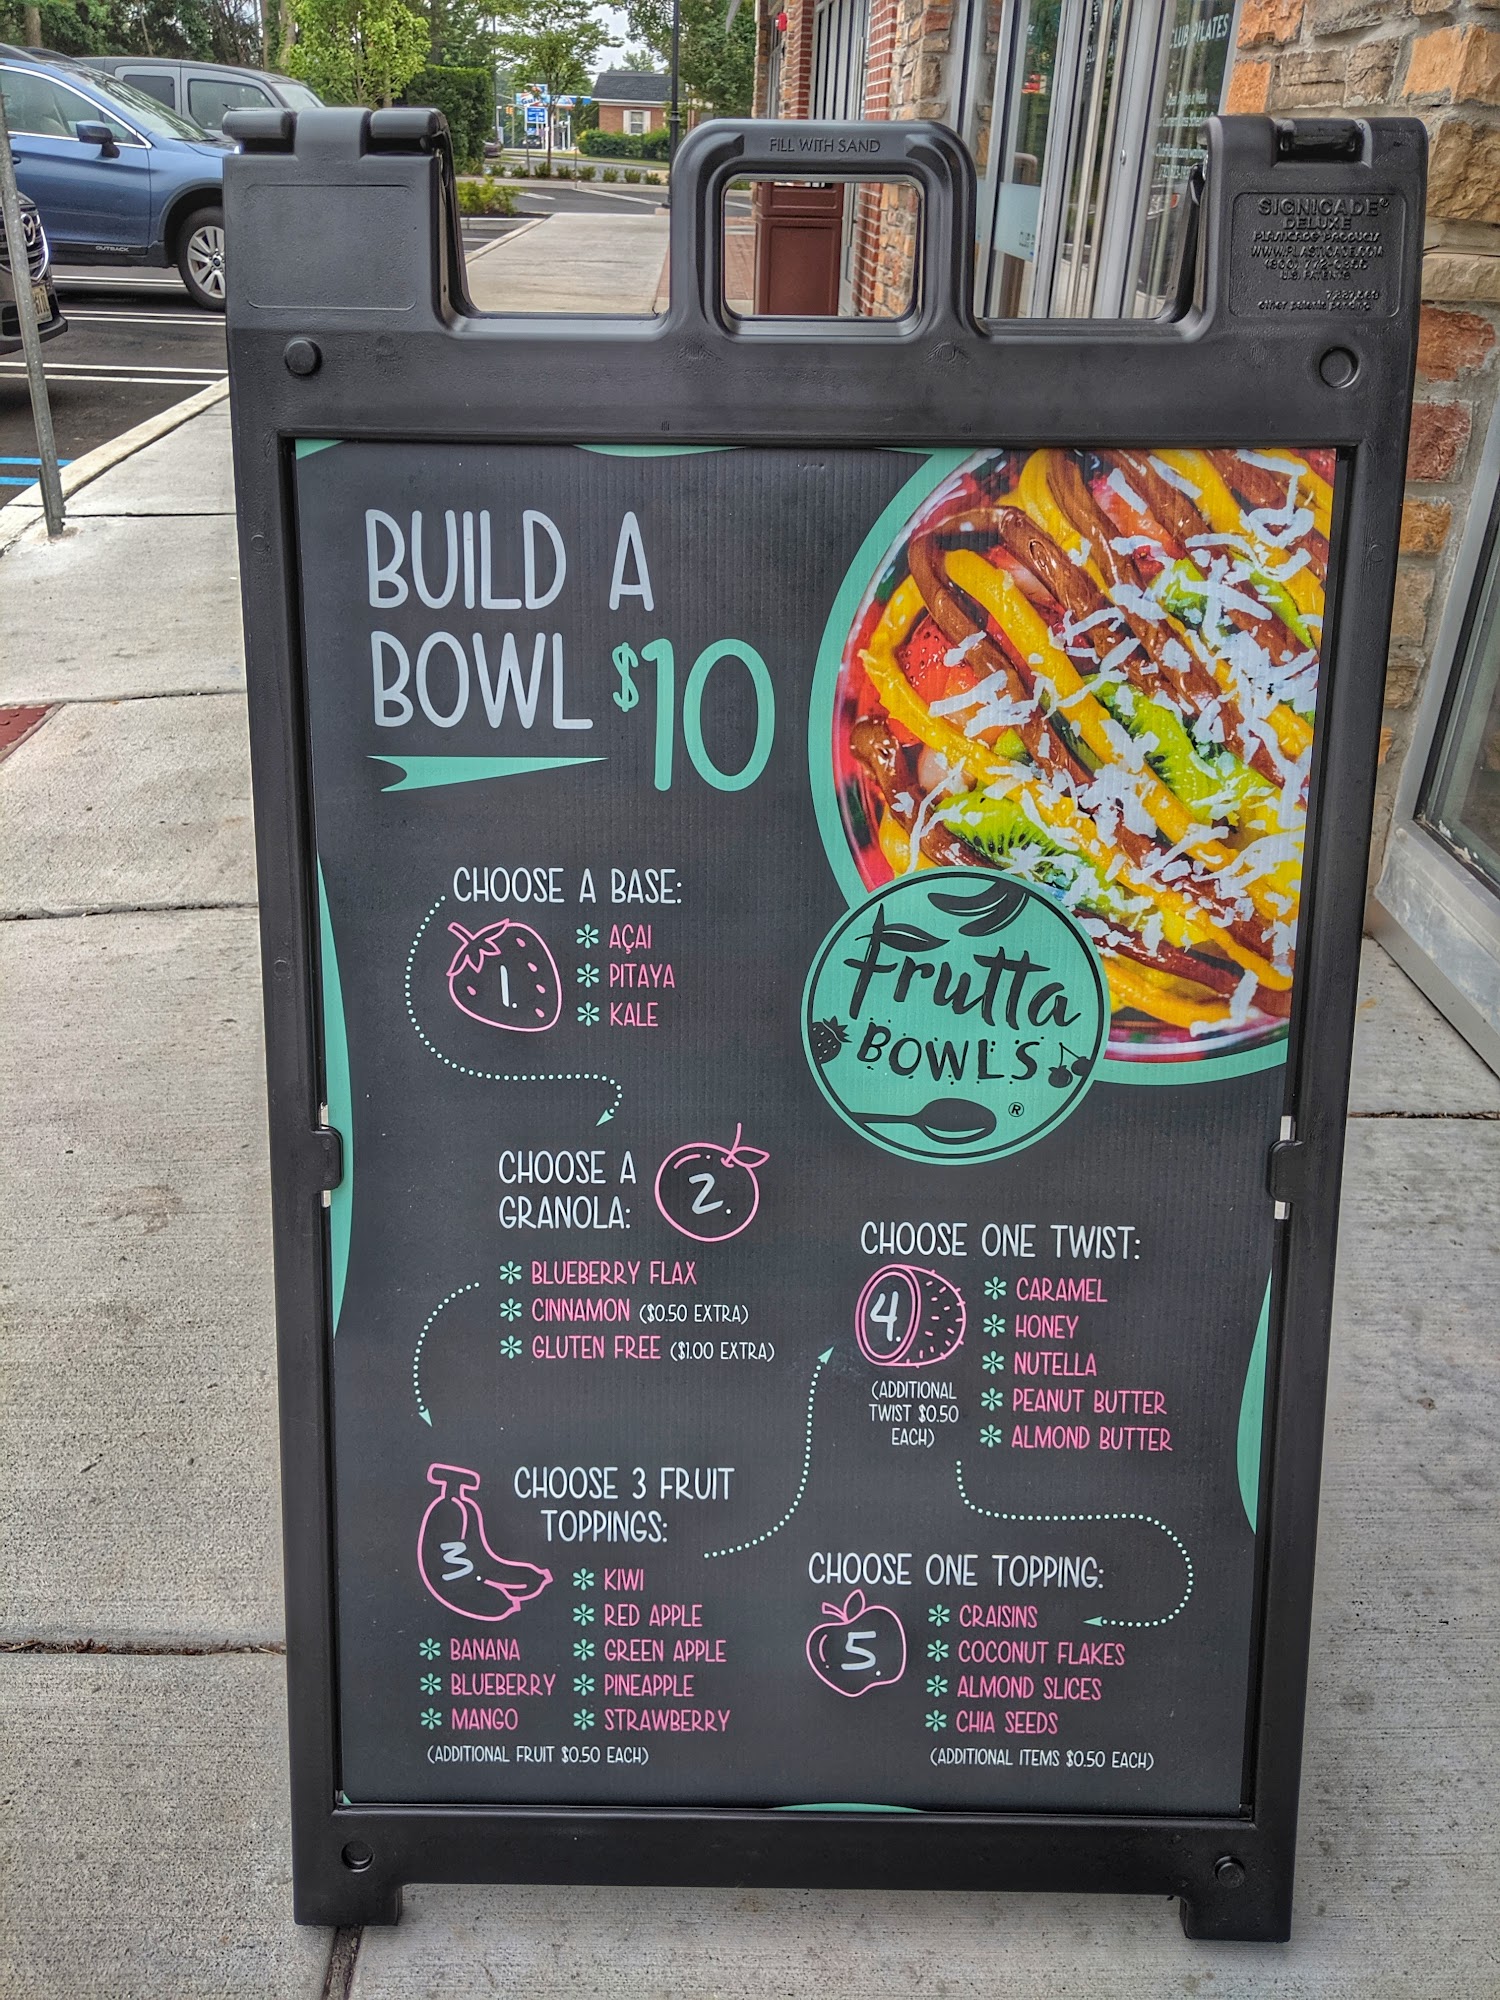 FILL WITH SAND
SIGNICADE®
DELUXE
PLASTICADE PRODUCTS
WWW.PLASTICADE.COM
U.S. PATENTS
other patents pending
CLUB PILATES
OUTBACK
BUILD A
BOWL $10
CHOOSE A BASE:
1.
* AÇAI
* PITAYA
* KALE
Frutta
BOWLS
®
CHOOSE A
GRANOLA:
2.
* BLUEBERRY FLAX
* CINNAMON ($0.50 EXTRA)
* GLUTEN FREE ($1.00 EXTRA)
3.
CHOOSE 3 FRUIT
TOPPINGS:
* KIWI
* RED APPLE
* BANANA * GREEN APPLE
* BLUEBERRY * PINEAPPLE
* MANGO * STRAWBERRY
(ADDITIONAL FRUIT $0.50 EACH)
CHOOSE ONE TWIST:
4.
(ADDITIONAL
TWIST $0.50
EACH)
* CARAMEL
* HONEY
* NUTELLA
* PEANUT BUTTER
* ALMOND BUTTER
CHOOSE ONE TOPPING:
5.
* CRAISINS
* COCONUT FLAKES
* ALMOND SLICES
* CHIA SEEDS
(ADDITIONAL ITEMS $0.50 EACH)